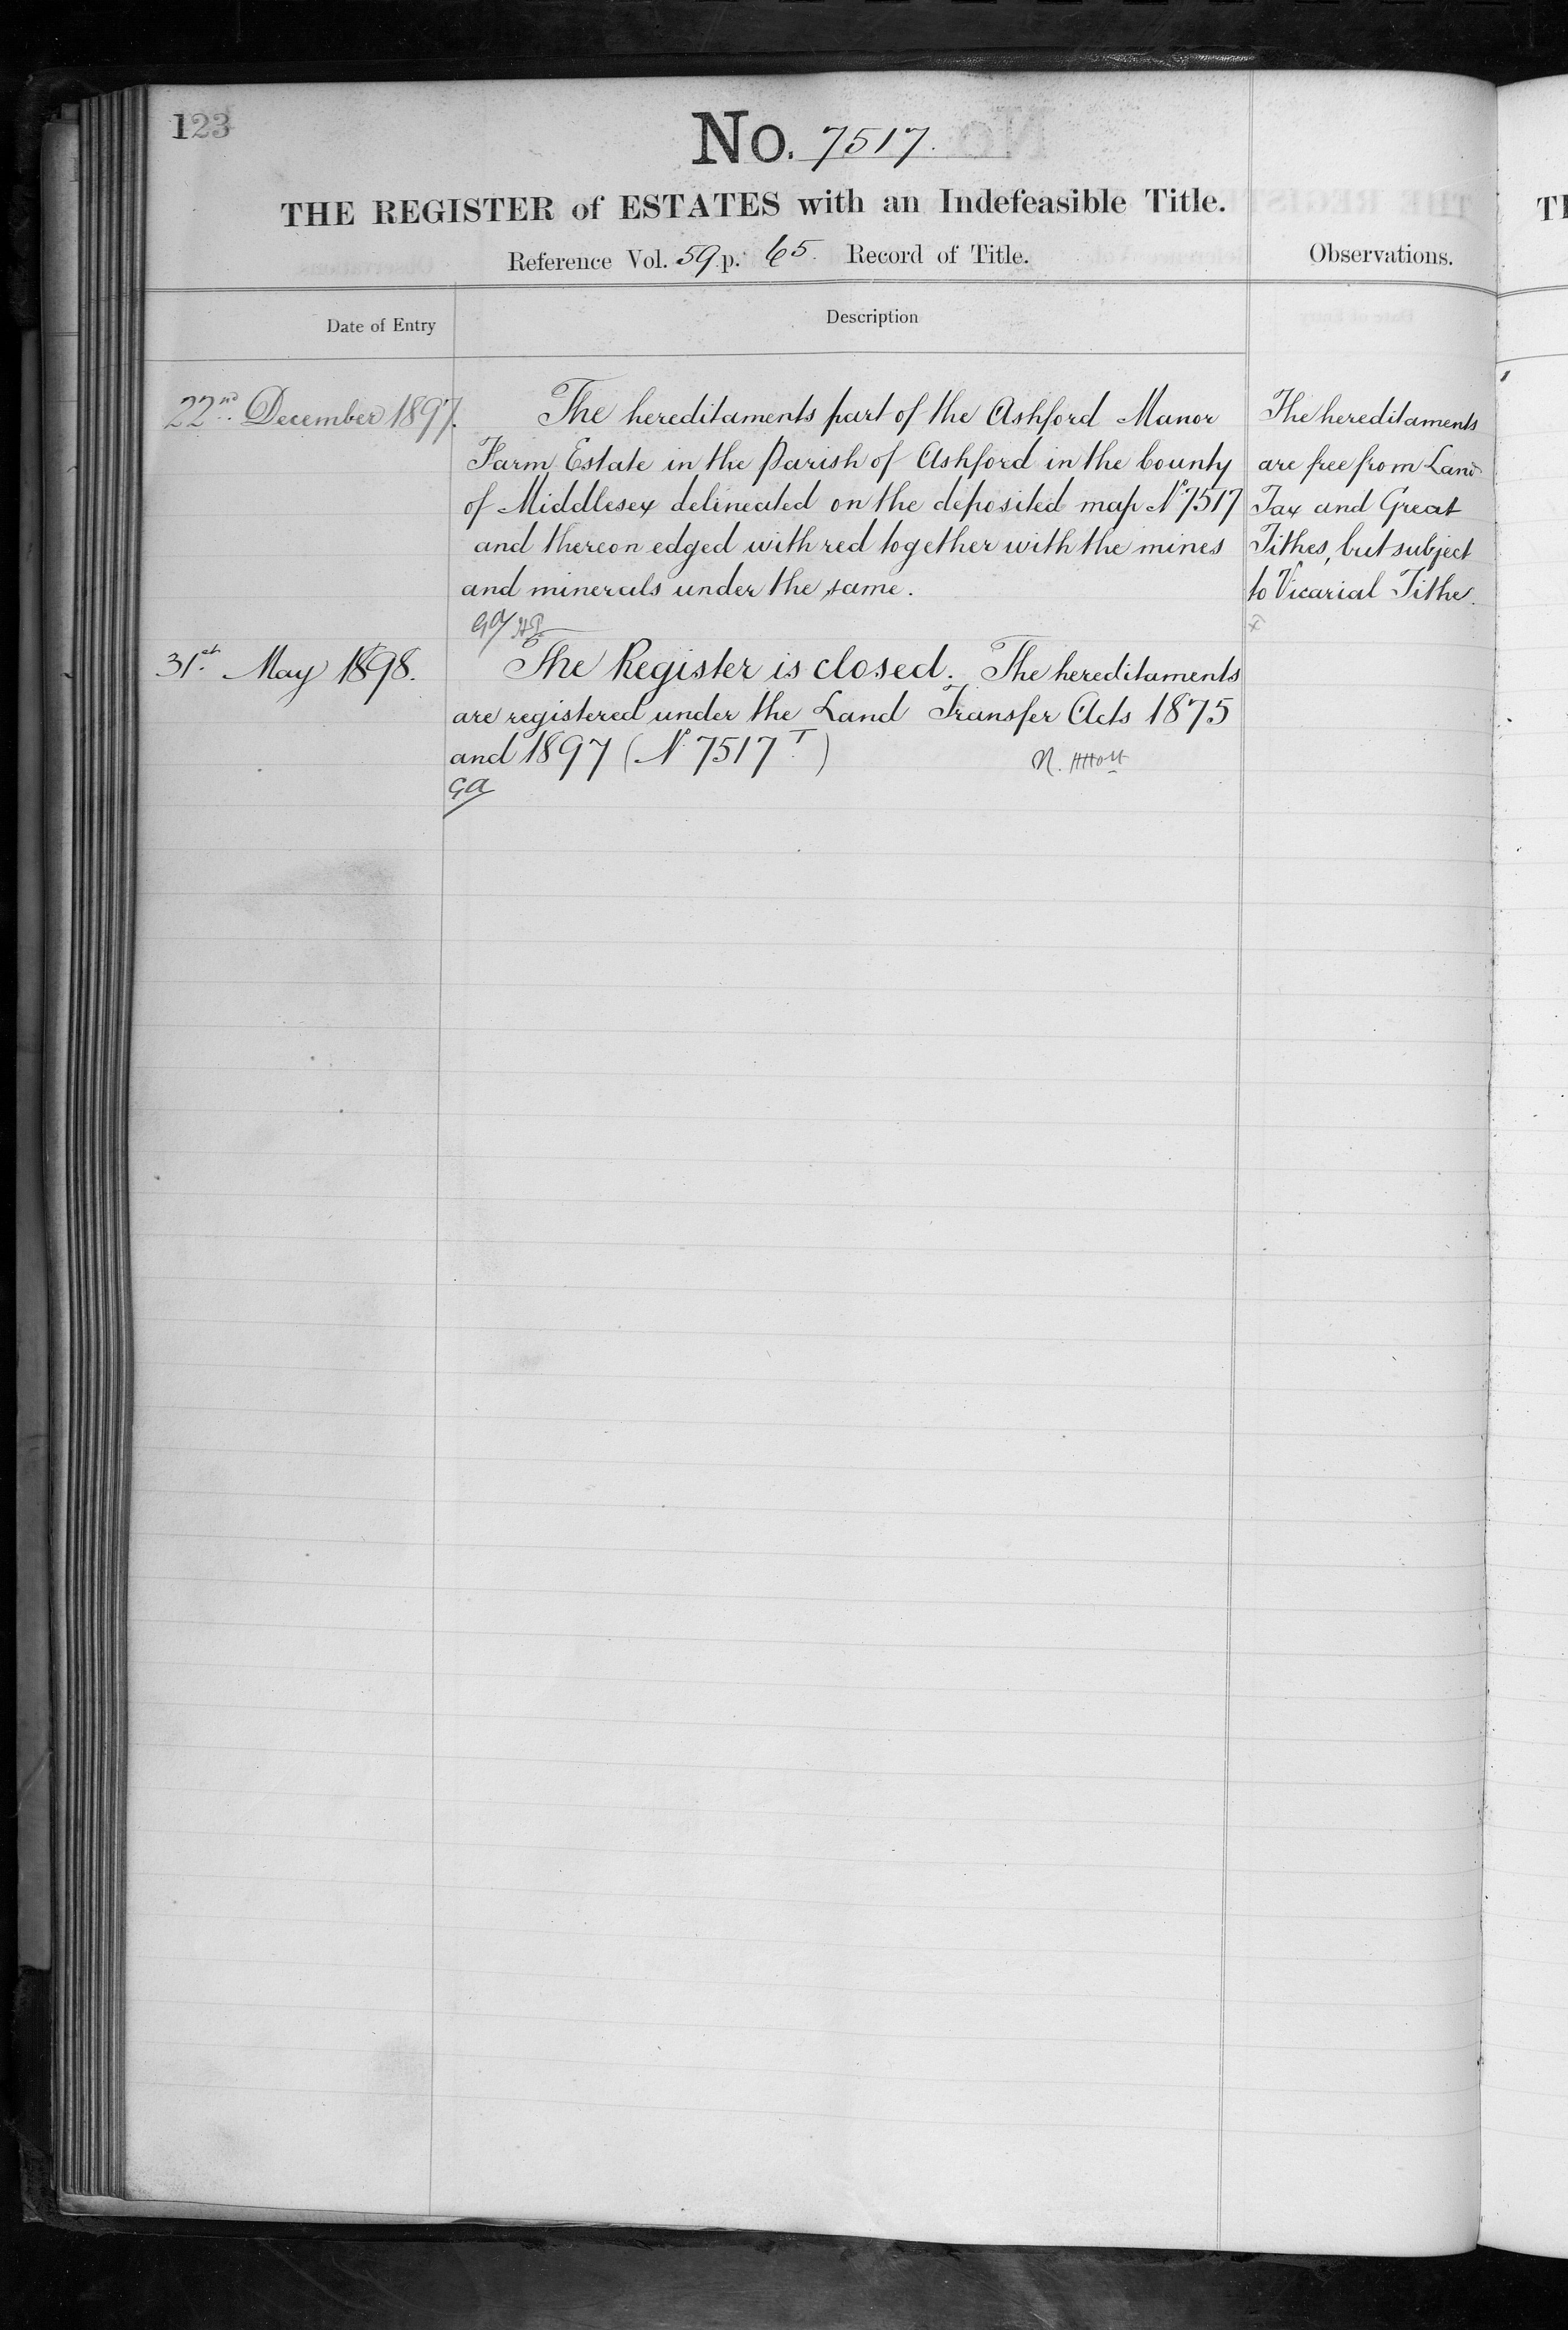 123
No. 7517.
THE REGISTER of ESTATES with an Indefeasible Title.
Reference Vol. 59 p. 65. Record of Title.
Observations.
Date of Entry
Description
22nd December 1897.
The hereditaments part of the Ashford Manor
Farm Estate in the Parish of Ashford in the County
of Middlesex delineated on the deposited map No 7517
and thereon edged with red together with the mines
and minerals under the same.
GA
The hereditaments
are free from Land
Tax and Great
Tithes, but subject
to Vicarial Tithe.
31st May 1898.
The Register is closed. The hereditaments
are registered under the Land Transfer Acts 1875
and 1897 (No 7517 T)
GA